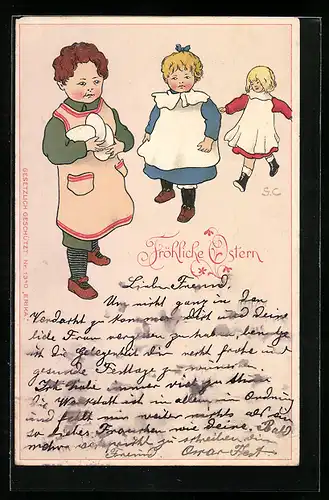 S.C
GESETZLICH GESCHÜTZT No. 1910 „ERIKA"
Fröhliche Ostern
Lieber Freund.
Um nicht ganz in den
Verdacht zu kommen, Dich und Deine
liebe Frau vergessen zu haben, benutze
ich die Gelegenheit Dir recht frohe und
gesunde Festtage zu wünschen.
Ich habe immer viel zu thun
die Werkstatt ist in allem in Ordnung
und fehlt mir weiter nichts als ein
so liebes Frauchen wie Deine. Bald
mehr zu schreiben Dein
Freund. Oscar